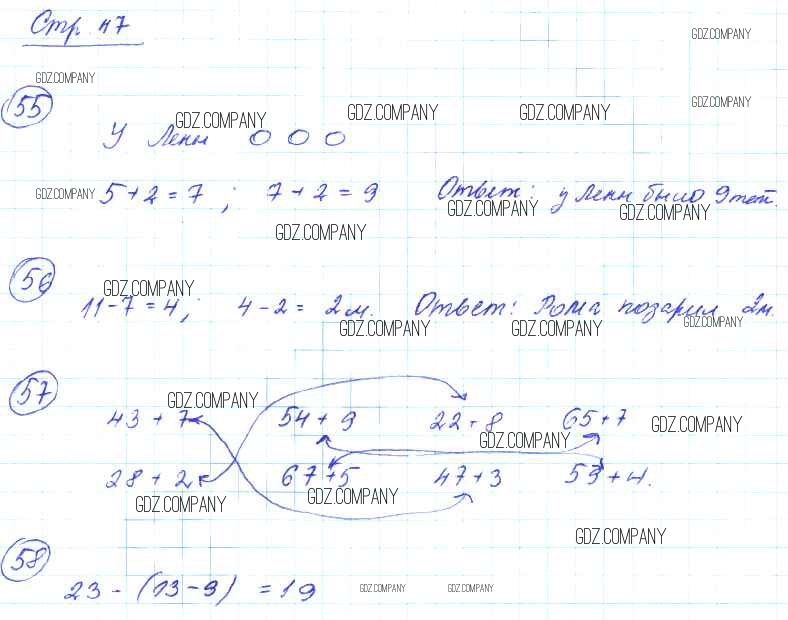 Стр. 47
GDZ.COMPANY
GDZ.COMPANY
55
GDZ.COMPANY GDZ.COMPANY GDZ.COMPANY GDZ.COMPANY
У Лены
GDZ.COMPANY 5+2=7; 7+2=9 Ответ: у Лены было 9 тет.
GDZ.COMPANY GDZ.COMPANY
GDZ.COMPANY
56
GDZ.COMPANY
11-7=4; 4-2= 2м. Ответ: Рома подарил 2м.
GDZ.COMPANY GDZ.COMPANY GDZ.COMPANY
57
GDZ.COMPANY
43+7 54+9 22+8 65+7 GDZ.COMPANY
GDZ.COMPANY
28+2 67+5 47+3 59+4.
GDZ.COMPANY GDZ.COMPANY
GDZ.COMPANY
58
23-(13-9)=19 GDZ.COMPANY GDZ.COMPANY